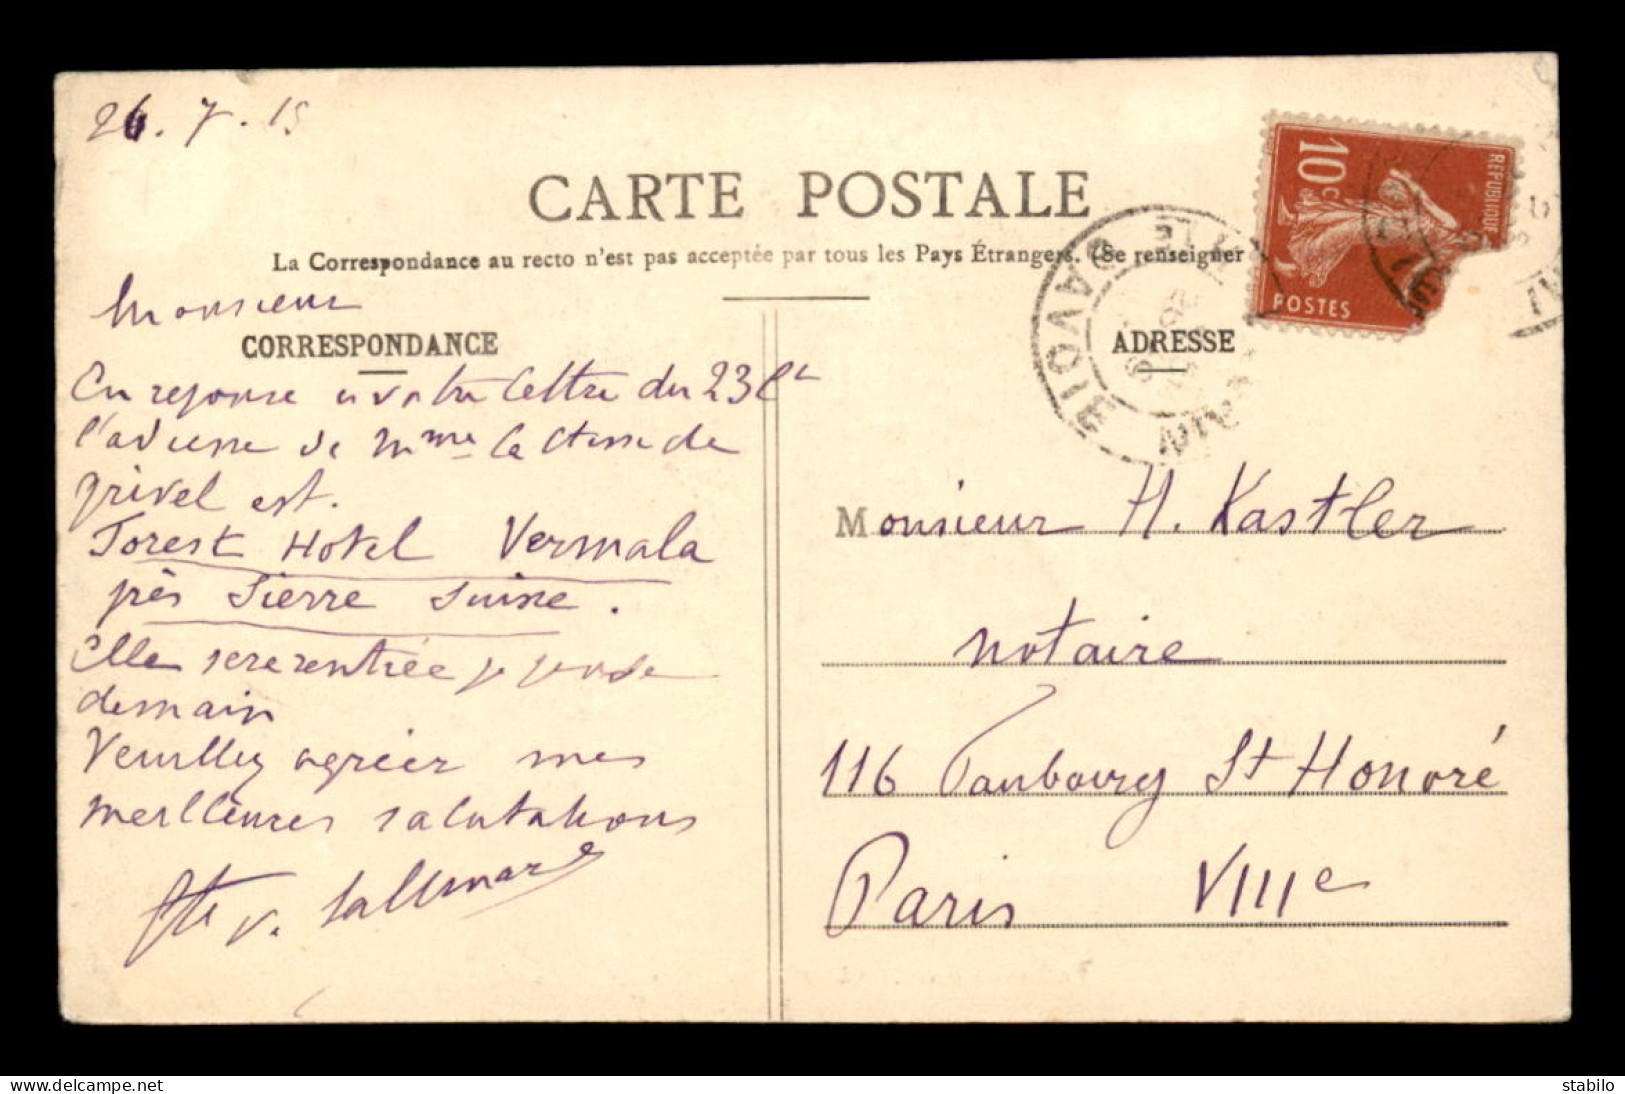 26. 7. 15
CARTE POSTALE
La Correspondance au recto n'est pas acceptée par tous les Pays Étrangers. (Se renseigner
Monsieur
CORRESPONDANCE
En reponse a votre lettre du 23 ct
l'adresse de Mme la Ctesse de
Grivel est.
Forest Hotel Vermala
près Sierre Suisse.
Elle sera rentrée je pense
demain
Veuillez agréer mes
meilleures salutations
10 c.
REPUBLIQUE
POSTES
SAVOIE
ADRESSE
Monsieur H. Kastler
notaire
116 Faubourg St Honoré
Paris VIIIe
delcampe.net
stabilo